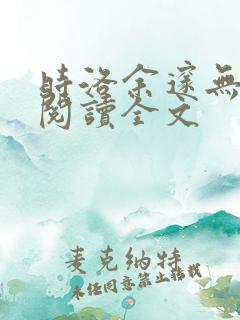 時洛余邃無
閱讀全文
麦克纳特
未经同意禁止转载